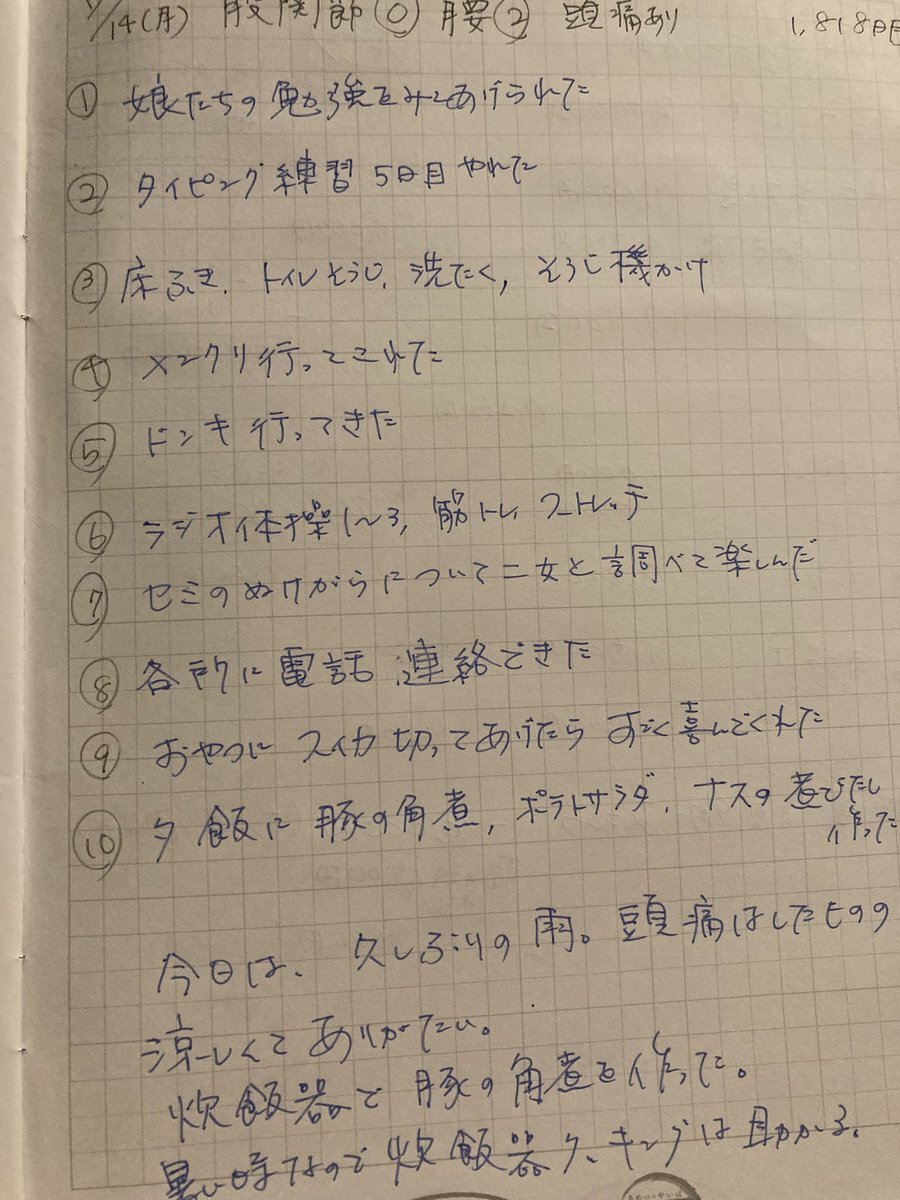 7/14(月) 股関節⓪ 腰② 頭痛あり 1,818日目
① 娘たちの勉強をみてあげられた
② タイピング練習 5日目やれた
③ 床ふき、トイレそうじ、洗たく、そうじ機かけ
④ メンクリ行ってこれた
⑤ ドンキ行ってきた
⑥ ラジオ体操1~3, 筋トレ, ストレッチ
⑦ セミのぬけがらについて二女と調べて楽しんだ
⑧ 各所に電話、連絡できた
⑨ おやつにスイカ切ってあげたらすごく喜んでくれた
⑩ 夕飯に豚の角煮, ポテトサラダ、ナスの煮びたし
作った
今日は、久しぶりの雨。頭痛はしたものの
涼しくてありがたい。
炊飯器で豚の角煮を作った。
暑い時なので炊飯器クッキングは助かる。